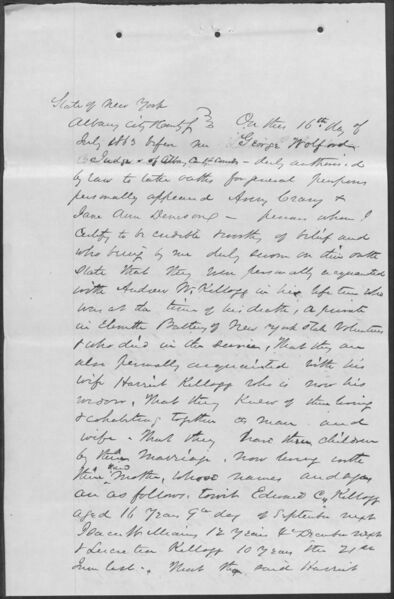 State of New York
Albany City & County ss On this 16th day of
July 1863 before me George Wolford
Judge of Albany County Courts duly authorized
by law to take oaths for general purposes
personally appeared Avery Crary &
Jane Ann Denison persons whom I
certify to be credible & worthy of belief and
who being by me duly sworn on their oath
State that they were personally acquainted
with Andrew W. Kellogg in his life time who
was at the time of his death, a private
in Eleventh Battery of New York State Volunteers
& who died in the service, That they are
also personally acquainted with his
wife Harriet Kellogg who is now his
widow, That they knew of their living
& cohabiting together as man and
wife. That they have three children
by their Marriage, now living with
their said Mother, whose names and ages
are as follows, to wit Edward C. Kellogg
aged 16 Years 9th day of September next
Isaac Williams 12 Years December next
& Kellogg 10 Years the 21st
June last. That the said Harriet